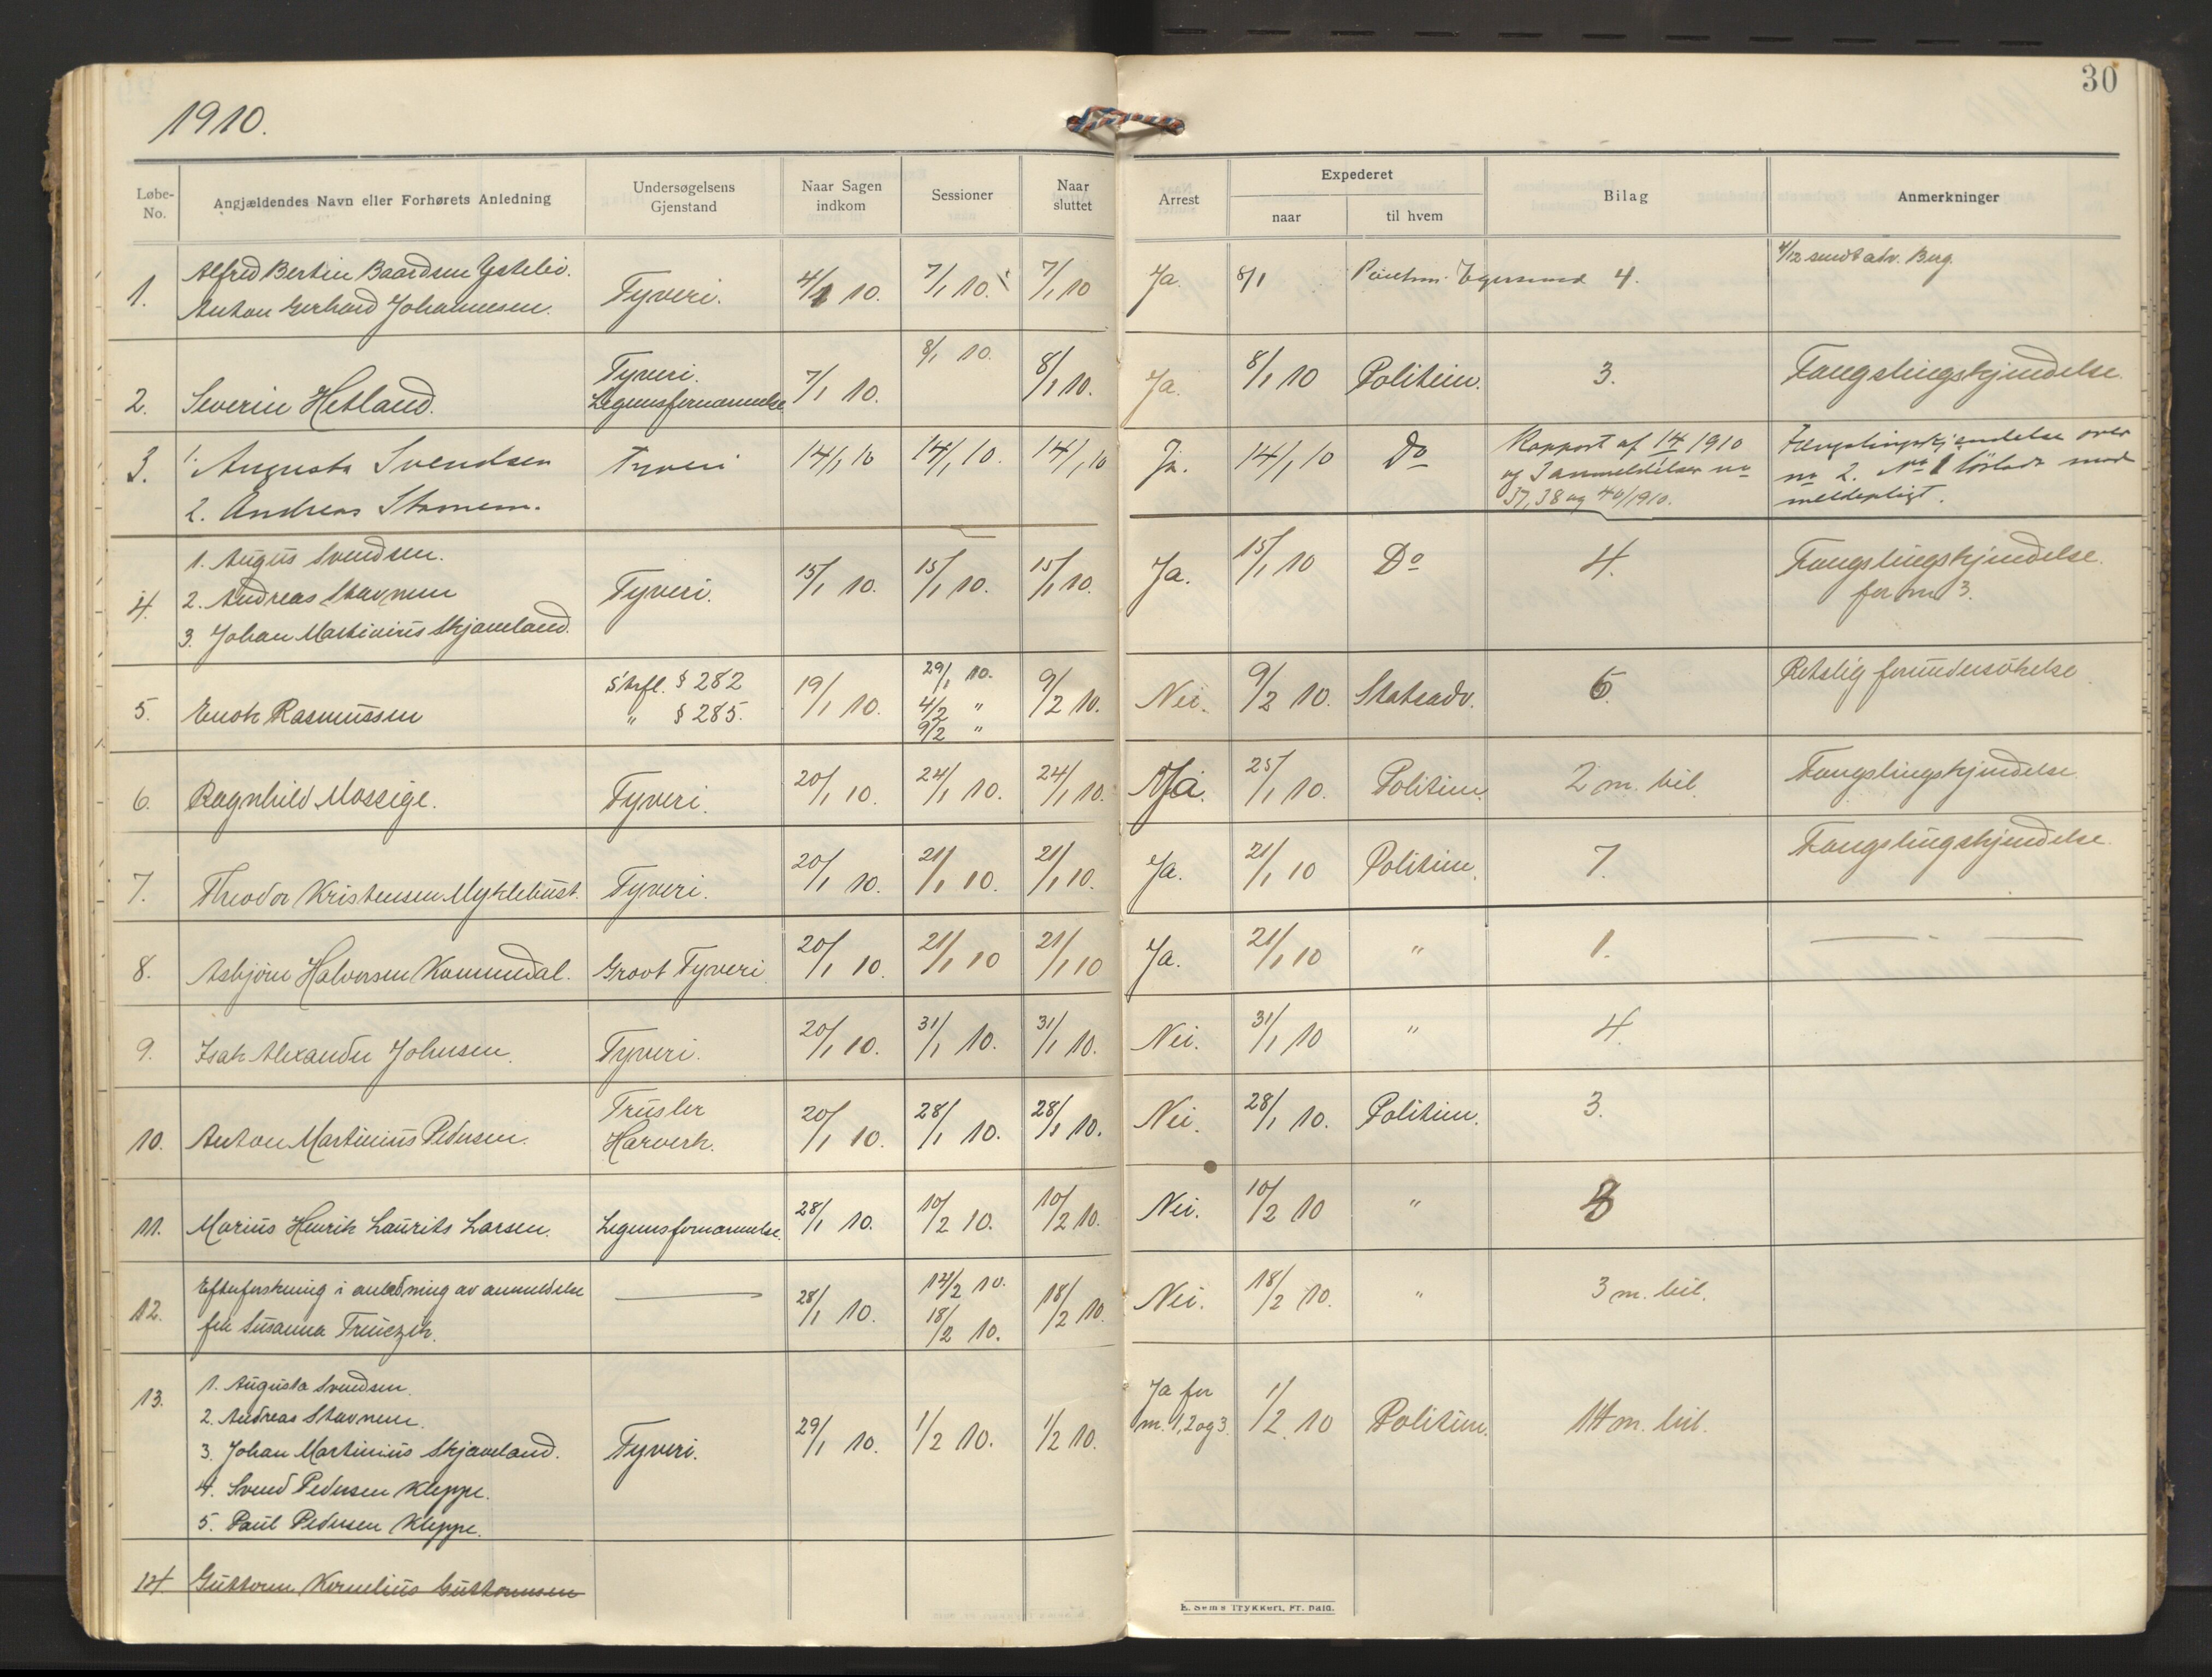 30
1910.
Løbe-No.	Angjældendes Navn eller Forhørets Anledning	Undersøgelsens Gjenstand	Naar Sagen indkom	Sessioner	Naar sluttet	Arrest	Expederet naar	til hvem	Bilag	Anmerkninger
1.	Alfred Bertin Baardsen Ystebø.
Anton Gerhard Johannesen.	Tyveri.	4/1 10.	7/1 10.	7/1 10	Ja.	8/1	Egersund	4.	4/12 sendt adv. Berg.
2.	Severin Hetland.	Tyveri.
Legemsfornærmelse	7/1 10.	8/1 10.	8/1 10.	Ja.	8/1 10	Politim.	3.	Fængslingskjendelse.
3.	1. Augusta Svendsen
2. Andreas Stavnem.	Tyveri	14/1 10	14/1 10.	14/1 10	Ja.	14/1 10	Do	Rapport af 14/1 1910
og 3 anmeldelser no
37, 38 og 40/1910.	Fængslingskjendelse over
no 2. No 1 løsladt mod
meldepligt.
4.	1. Augus Svendsen.
2. Andreas Stavnem
3. Johan Martinius Skjæveland.	Tyveri.	15/1 10.	15/1 10.	15/1 10.	Ja.	15/1 10	Do	4.	Fængslingskjendelse
for nr 3.
5.	Enok Rasmussen	Strfl. § 282
" § 285.	19/1 10.	29/1 10.
4/2 "
9/2 "	9/2 10.	Nei.	9/2 10.	Statsadv.	6.	Retslig forundersökelse
6.	Ragnhild Mossige.	Tyveri.	20/1 10.	24/1 10.	24/1 10.	Ja.	25/1 10.	Politim.	2 m. bil.	Fængslingskjendelse.
7.	Theodor Kristensen Myklebust.	Tyveri.	20/1 10.	21/1 10.	21/1 10.	Ja.	21/1 10	Politim.	7.	Fængslingskjendelse.
8.	Asbjørn Halvorsen Kommedal.	Grovt Tyveri	20/1 10.	21/1 10	21/1 10	Ja.	21/1 10	"	1.	— " —
9.	Isak Alexander Johnsen.	Tyveri.	20/1 10.	31/1 10.	31/1 10.	Nei.	31/1 10	"	4.
10.	Anton Martinius Pedersen.	Trusler
Hærverk.	20/1 10.	28/1 10.	28/1 10.	Nei.	28/1 10.	Politim.	3.
11.	Marius Henrik Laurits Larsen.	Legemsfornærmelse.	28/1 10.	10/2 10.	10/2 10.	Nei.	10/2 10	"	8
12.	Efterforskning i anledning av anmeldelse
fra Susanna	—	28/1 10.	14/2 10.
18/2 10.	18/2 10.	Nei.	18/2 10.	"	3 m. bil.
13.	1. Augusta Svendsen.
2. Andreas Stavnem.
3. Johan Martinius Skjæveland.
4. Svend Pedersen Kleppe.
5. Paul Pedersen Kleppe.	Tyveri.	29/1 10.	1/2 10.	1/2 10.	Ja for
nr. 1, 2 og 3.	1/2 10	Politim.	14 m. bil.
14	Guttorm Kornelius Guttormsen
E. Sem's Trykkeri, Fr.hald.